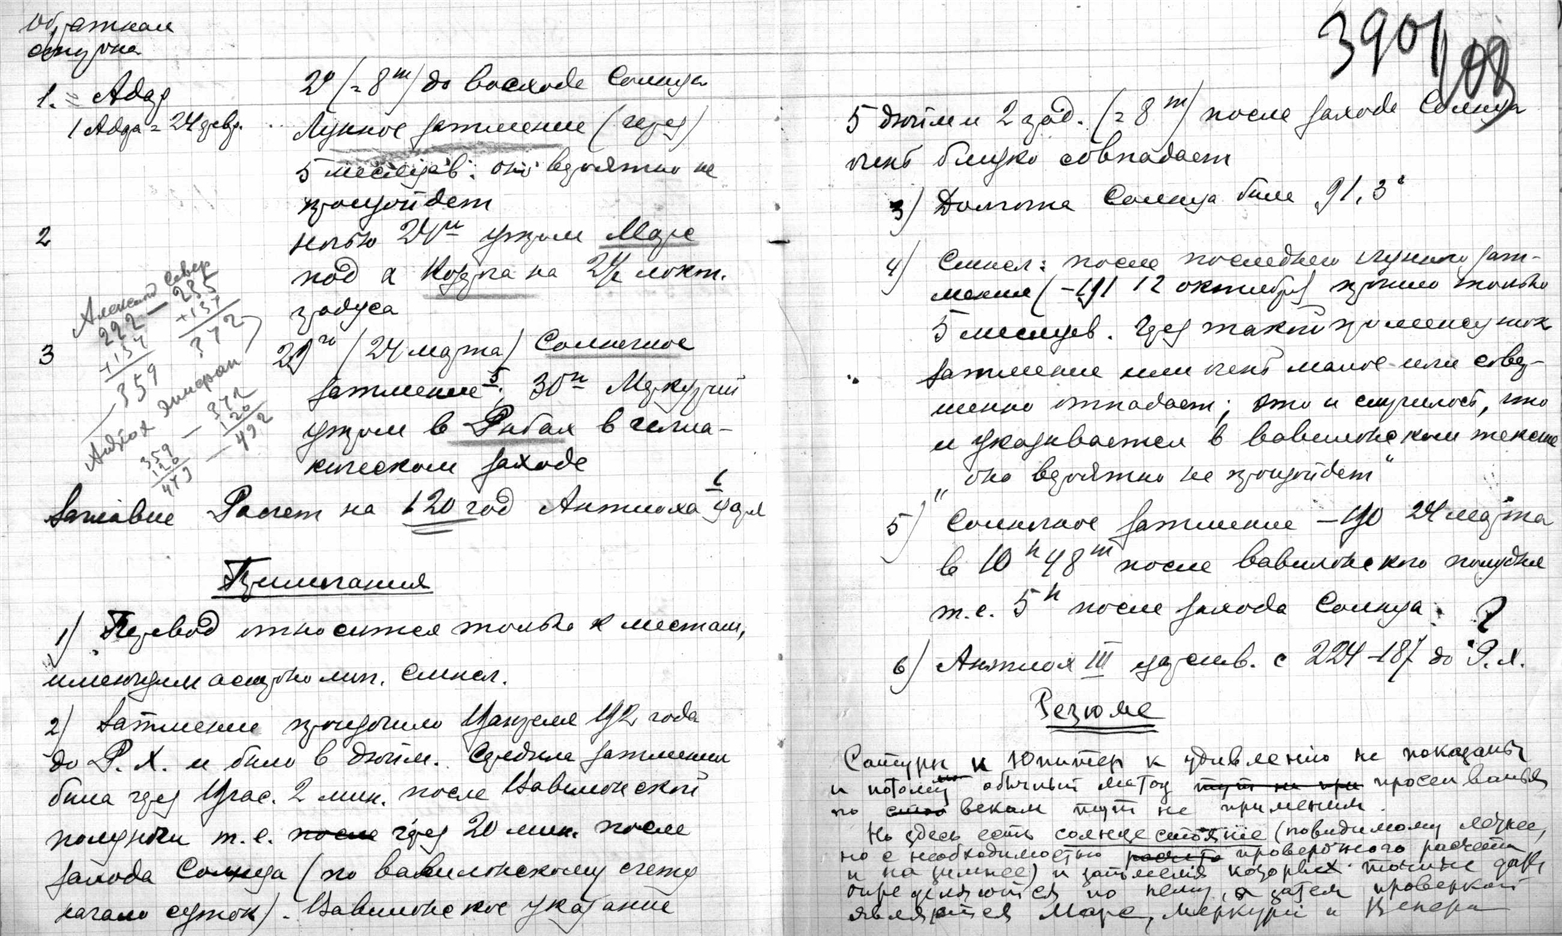 Обратная
сторона
1. = Адар
1 Адара = 24 февр.
2° (= 8m) до восхода Солнца
Лунное затмение (через)
5 месяцев: оно вероятно не
произойдет
2
ночью 24го утром Марс
под α Козрога на 2½ локт.
градуса
3
29го (24 марта) Солнечное
затмение 5; 30го Меркурий
утром в Рыбах в гелиа-
кическом заходе
Александ Север
222 — 235
+137 +137
359 372
Антиох Эпифан
359 — 372
120 120
473 — 492
Заглавие Расчет на 120 год Антиоха царя
Примечания
1) Перевод относится только к местам,
имеющим астрономич. смысл.
2) Затмение произошло 192 года
до Р. Х. и было в дюйм. Средина затмения
была через час. 2 мин. после Вавилонской
полуночи т. е. после через 20 мин. после
захода Солнца (по вавилонскому счету
начало суток). Вавилонское указание
3901
108
5 дюйм и 2 град. (= 8m) после захода Солнца
очень близко совпадает
3) Долгота Солнца была 91,3°
4) Смысл: после последнего лунного зат-
мения (–191 12 октября) прошло только
5 месяцев. Через такой промежуток
затмение или очень малое или совер-
шенно отпадает; это и случилось, что
и указывается в вавилонском тексте
„оно вероятно не произойдет“
5) Солнечное затмение –190 24 марта
в 10h 48m после вавилонского полудня
т. е. 5h после захода Солнца. ?
6) Антиох III царств. с 224–187 до Р. Х.
Резюме
Сатурн и Юпитер к удивлению не показаны
и потому обычный метод тут не при просеивания
по векам тут не применим.
Но здесь есть солнцестояние (повидимому летнее,
но с необходимостью расчета проверочного расчета
и на зимнее) и затмения которых точные даты
определяются по нему, а затем проверкой
являются Марс, Меркурий и Венера